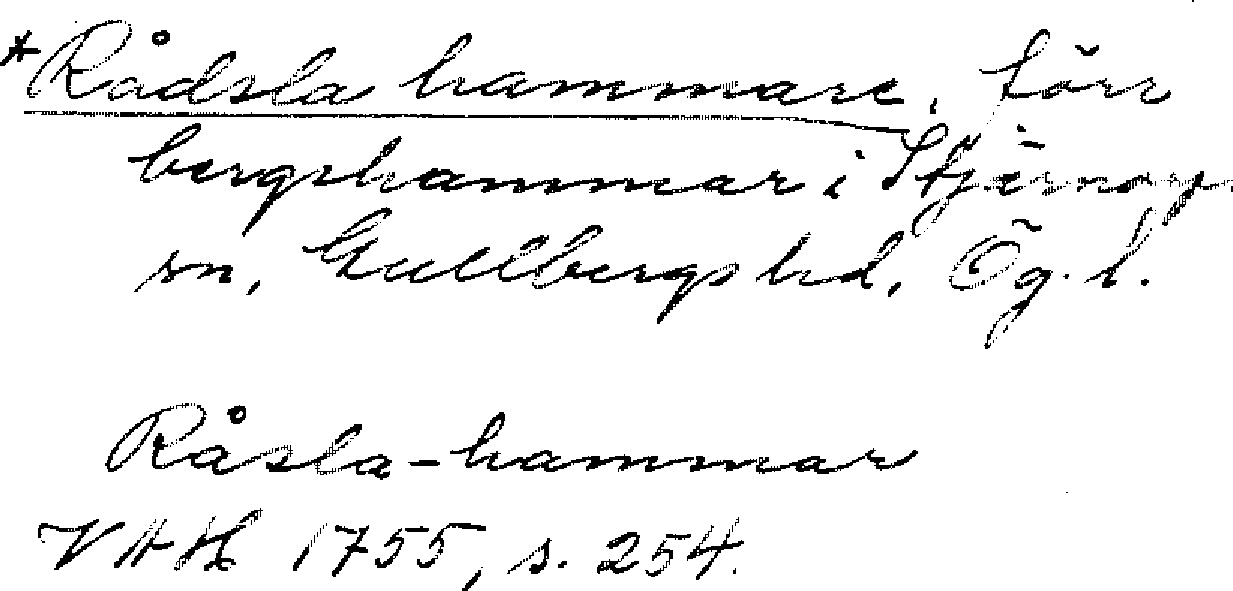 *Rådsla hammare, förr
bergshammar i Stjärnorp
sn, Gullbergs hd, Ög. l.
Råsla-hammar
VAH 1755, s. 254.